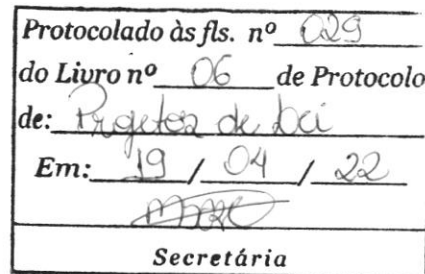 Protocolado às fls. nº 029
do Livro nº 06 de Protocolo
de: Projetos de Lei
Em: 19 / 04 / 22
Secretária